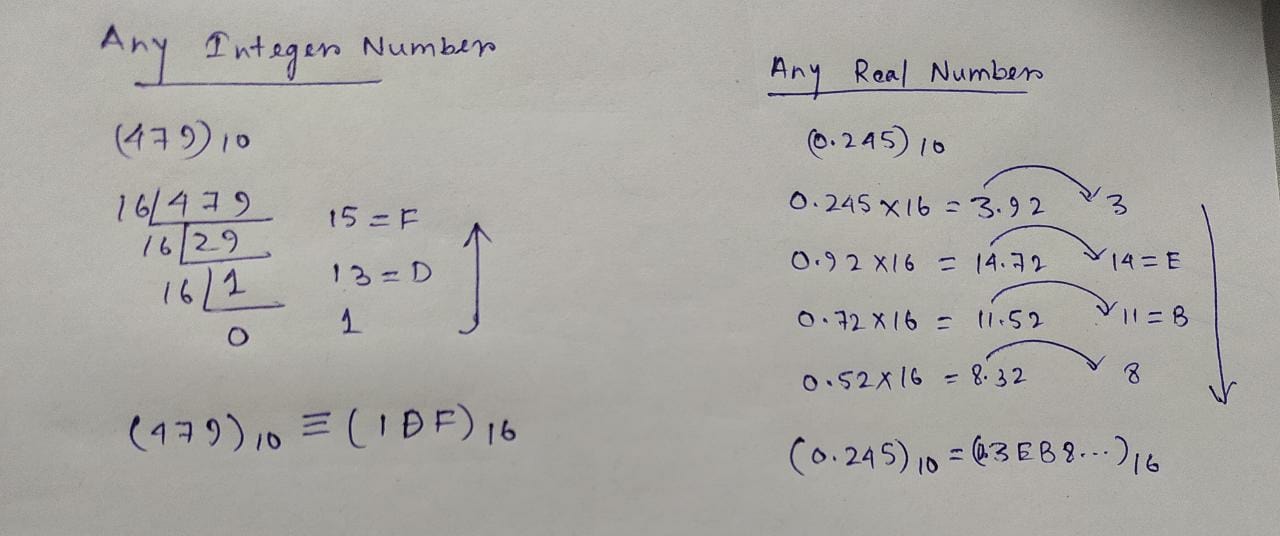 Any Integer Number
(479)10
16 479
16 29 15 = F
16 1 13 = D
0 1
(479)10 ≡ (1DF)16
Any Real Number
(0.245)10
0.245 × 16 = 3.92 3
0.92 × 16 = 14.72 14 = E
0.72 × 16 = 11.52 11 = B
0.52 × 16 = 8.32 8
(0.245)10 = (0.3EB8...)16